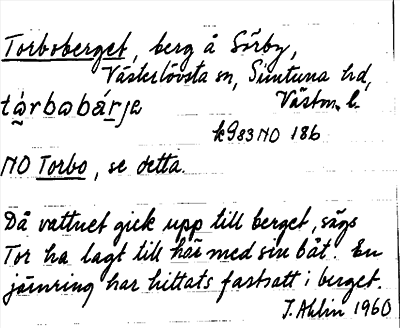 Torboberget, berg å Sörby,
Västerlövsta sn, Simtuna hd,
Västm. l.
k983 NO 186
NO Torbo, se detta.
Då vattnet gick upp till berget, sägs
Tor ha lagt till här med sin båt. En
järnring har hittats fastsatt i berget.
J. Ahlin 1960